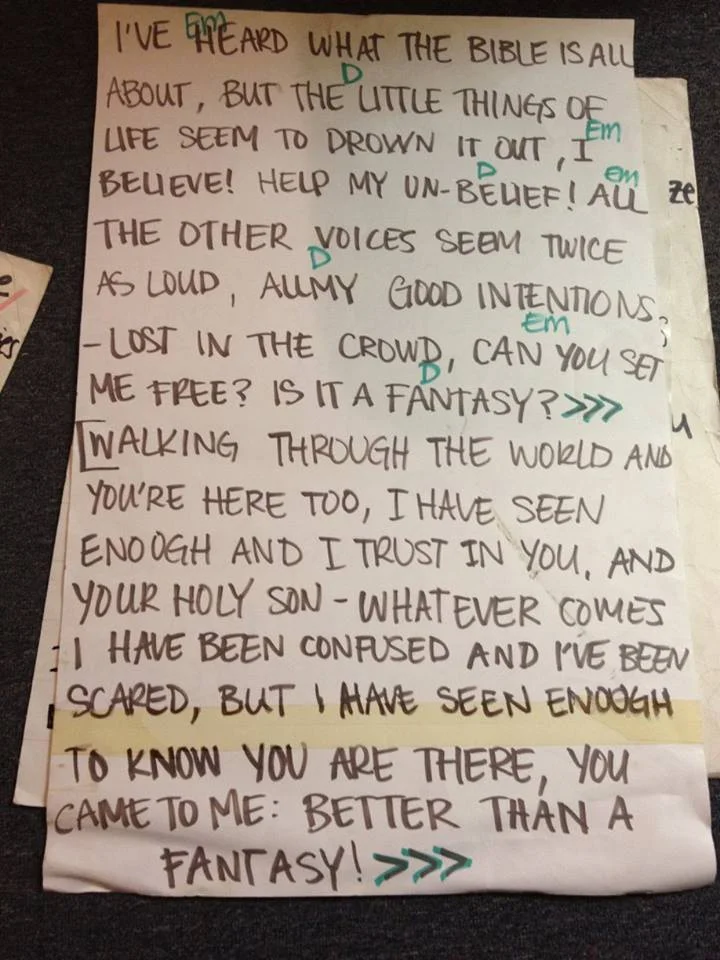 Em
I'VE HEARD WHAT THE BIBLE IS ALL
D
ABOUT, BUT THE LITTLE THINGS OF
Em
LIFE SEEM TO DROWN IT OUT, I
D em
BELIEVE! HELP MY UN-BELIEF! ALL
ze
THE OTHER VOICES SEEM TWICE
D
AS LOUD, ALL MY GOOD INTENTIONS,
Em
- LOST IN THE CROWD, CAN YOU SET
D
ME FREE? IS IT A FANTASY? >>>
[WALKING THROUGH THE WORLD AND
YOU'RE HERE TOO, I HAVE SEEN
ENOOGH AND I TRUST IN YOU, AND
YOUR HOLY SON - WHATEVER COMES
I HAVE BEEN CONFUSED AND I'VE BEEN
SCARED, BUT I HAVE SEEN ENOOGH
TO KNOW YOU ARE THERE, YOU
CAME TO ME: BETTER THAN A
FANTASY! >>>